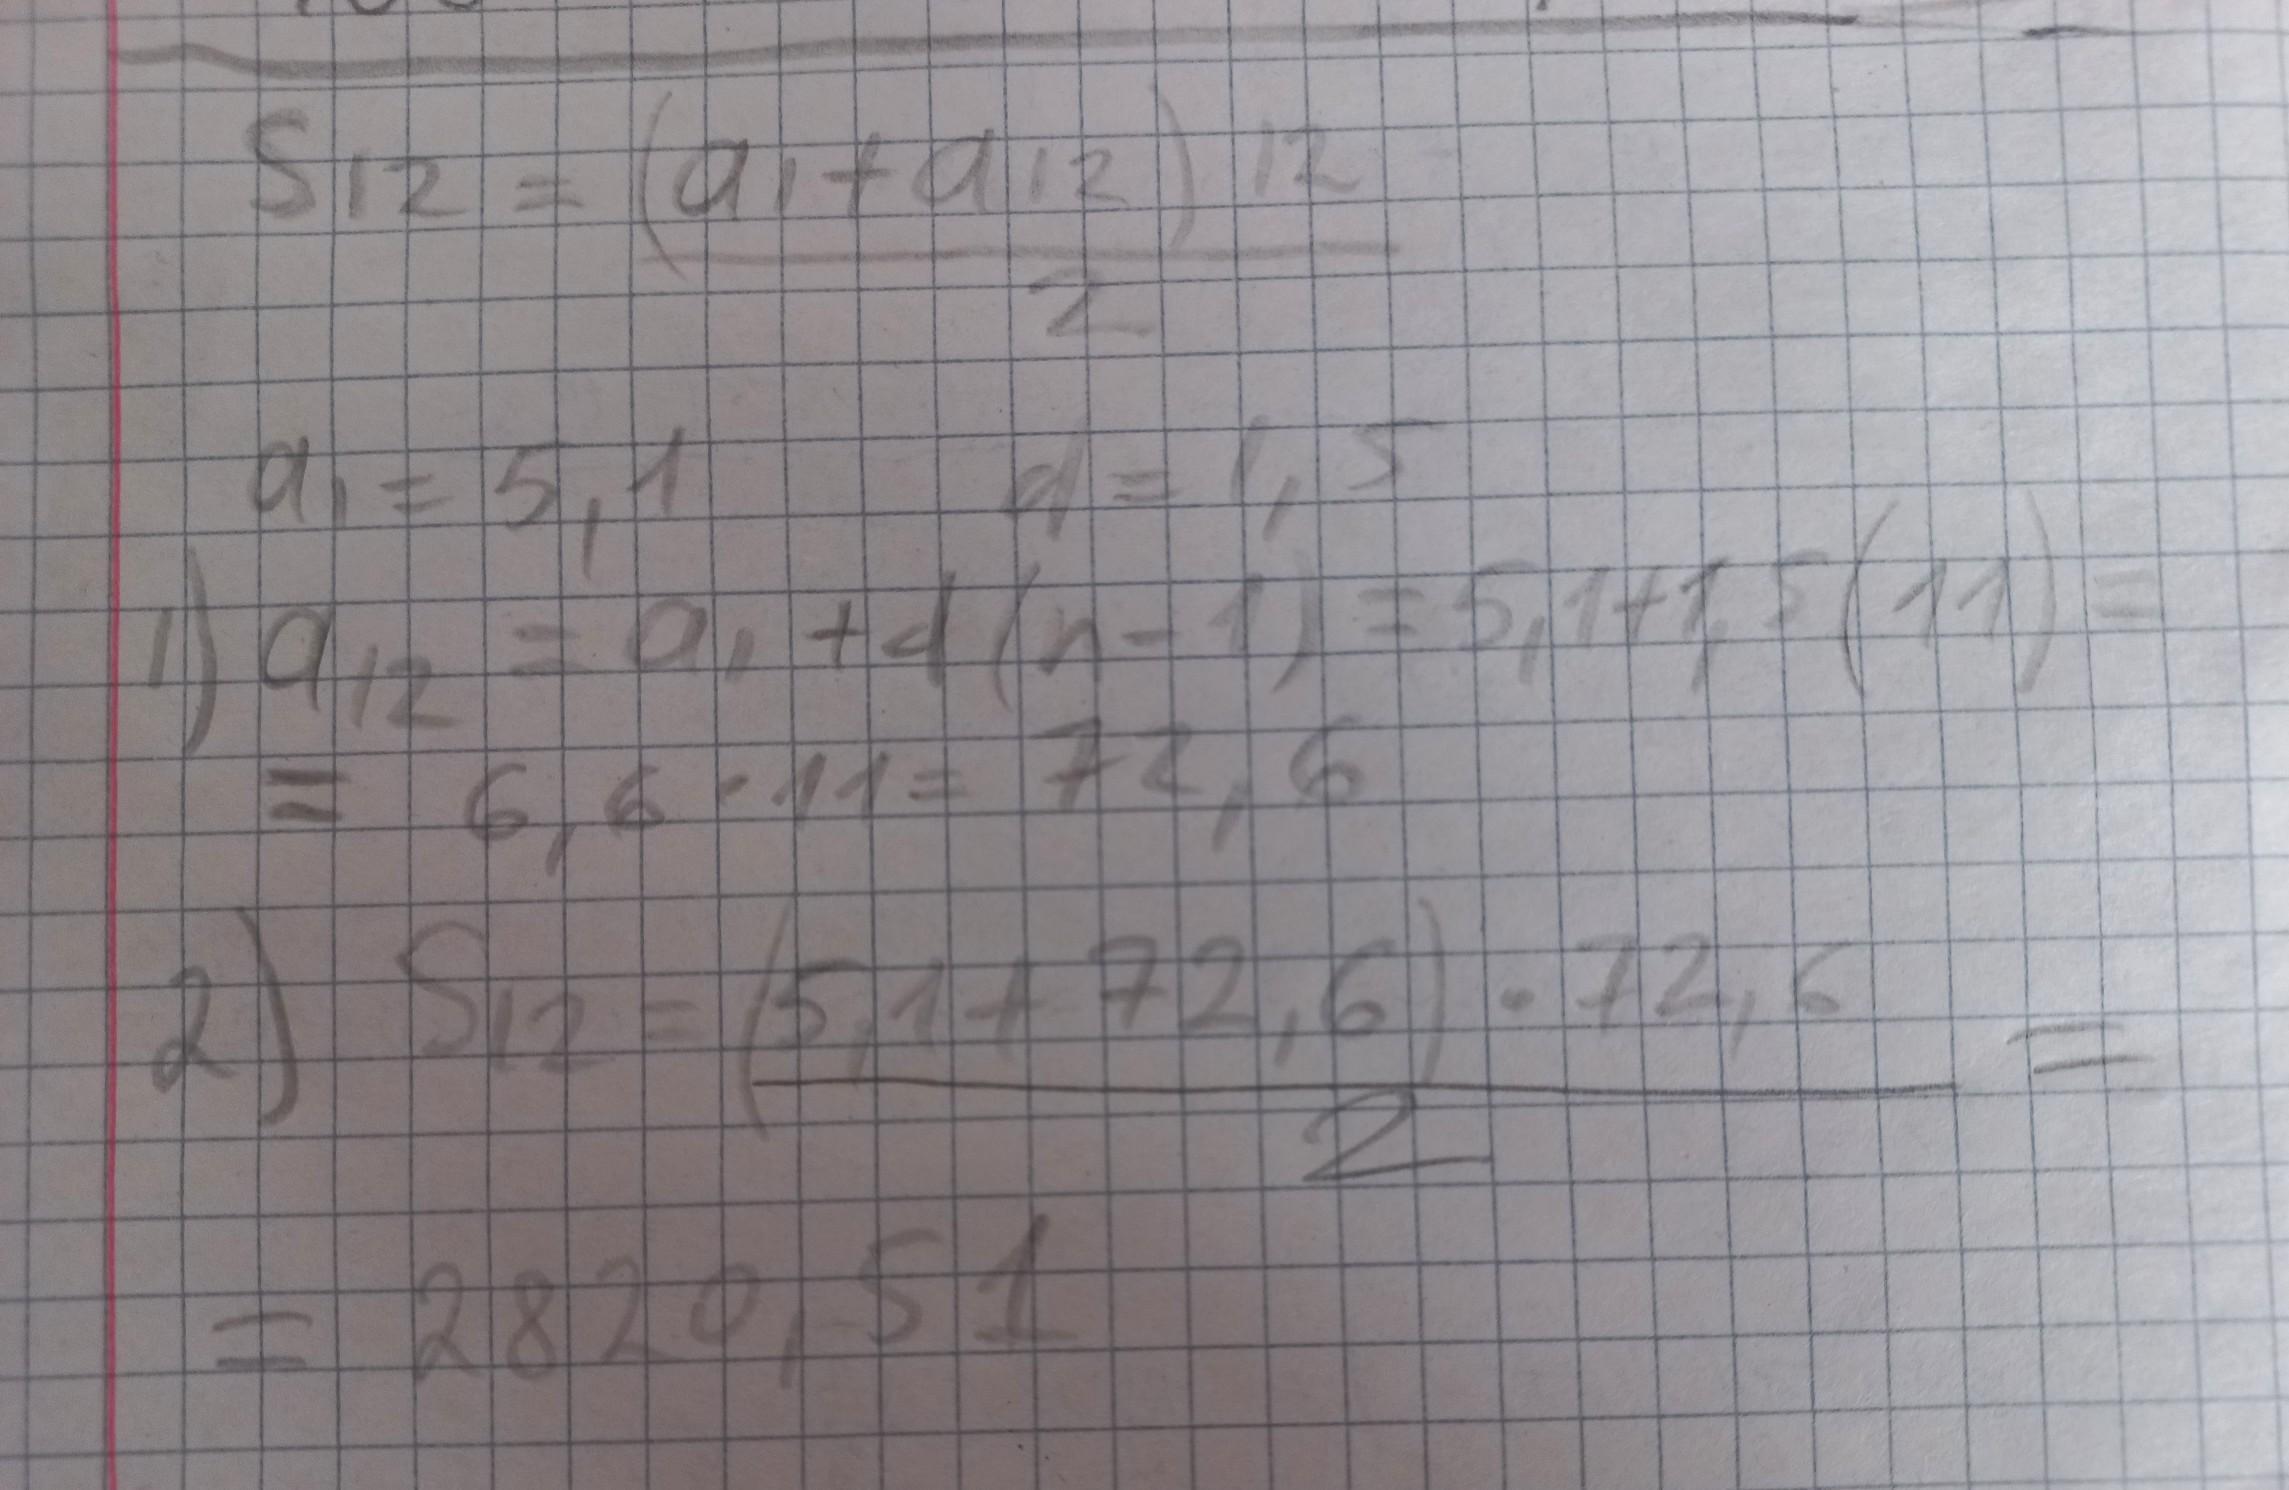 S12 = (a1 + a12) 12
2
a1 = 5,1 d = 1,5
1) a12 = a1 + d (n - 1) = 5,1 + 1,5 (11) =
= 6,6 · 11 = 72,6
2) S12 = (5,1 + 72,6) · 72,6 =
2
= 2820,51